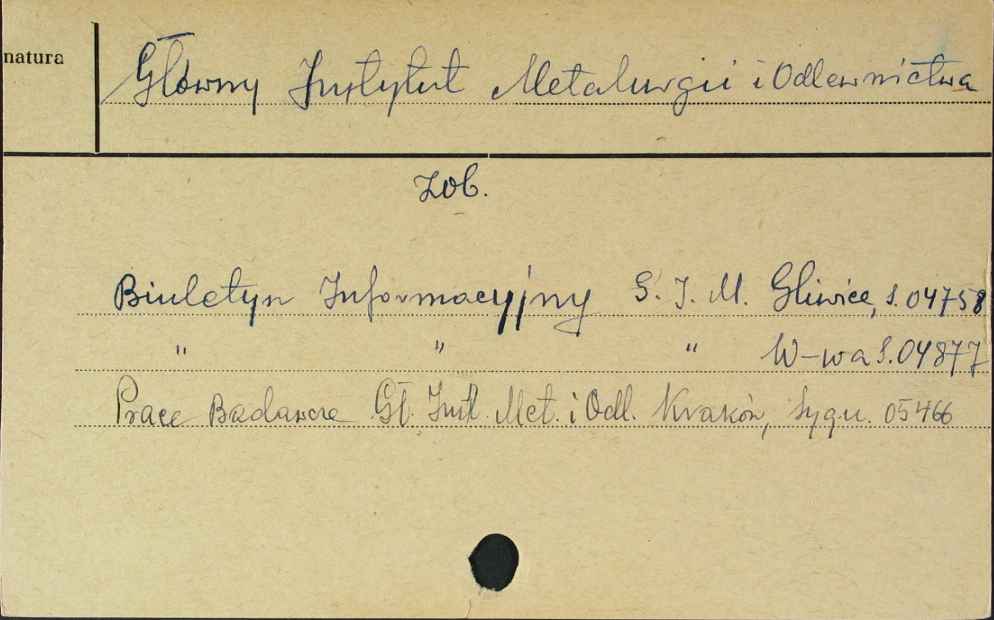 natura
Główny Instytut Metalurgii i Odlewnictwa
Zob.
Biuletyn Informacyjny G. I. M. Gliwice, s. 04758
" " " W-wa S. 04877
Prace Badawcze Gł. Inst. Met. i Odl. Kraków, sygn. 05466